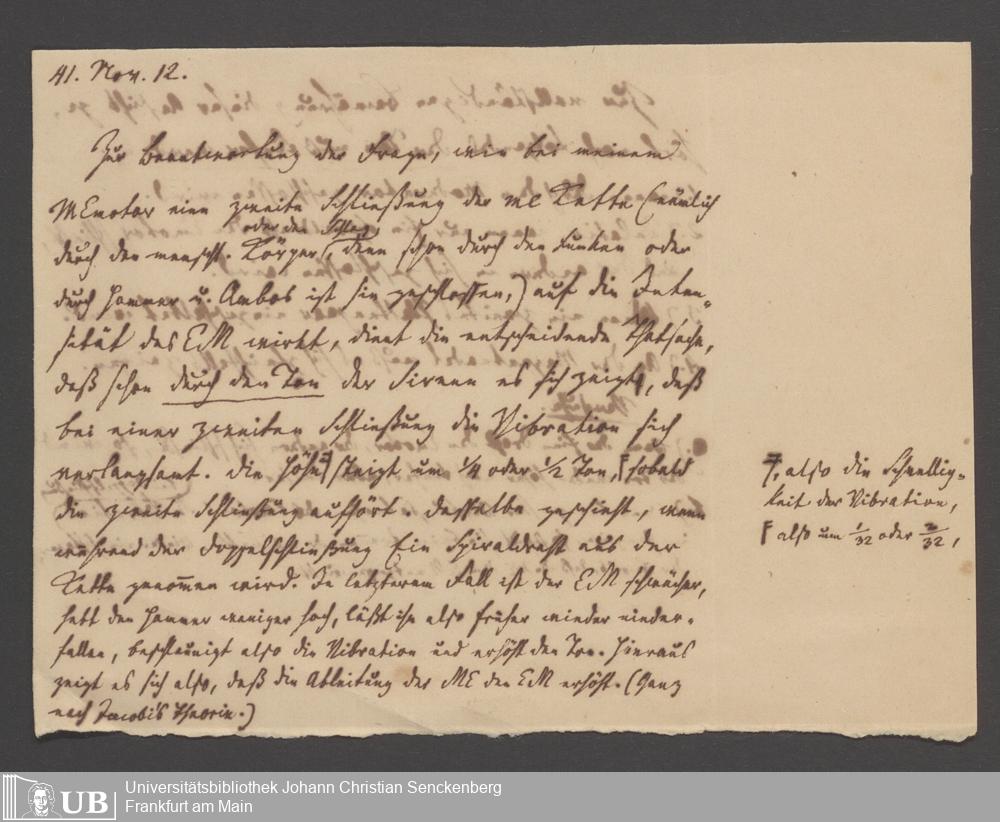 41. Nov. 12.
Zur Beantwortung der Frage, wie bei meinem
MEmotor eine zweite Schließung der me Kette (nämlich
oder den Schlag,
durch den menschl. Körper, denn schon durch den Funken oder
durch Hammer u. Ambos ist sie geschlossen,) auf die Inten-
sität des EM wirkt, dient die entscheidende Thatsache,
daß schon durch den Ton der Sirene es sich zeigt, daß
bei einer zweiten Schließung die Vibration sich
verlangsamt. Die Höhe steigt um 1/4 oder 1/2 Ton, sobald
die zweite Schließung aufhört. Dasselbe geschieht, wenn
während der Doppelschließung Ein Spiraldraht aus der
Kette genommen wird. In letzterem Fall ist der EM schwächer,
hebt den Hammer weniger hoch, läßt ihn also früher wieder nieder-
fallen, beschleunigt also die Vibration und erhöht den Ton. Hieraus
zeigt es sich also, daß die Ableitung des ME den EM erhöht. (Ganz
nach Jacobi's Theorie.)
, also die Schnellig-
keit der Vibration,
also um 1/32 oder 2/32,
Universitätsbibliothek Johann Christian Senckenberg
Frankfurt am Main
UB